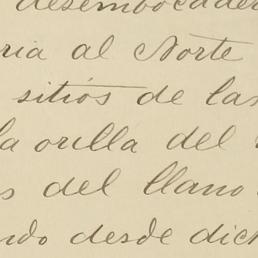 desembocader
ria al Norte
sitios de las
la orilla del
s del llano
ndo desde dich